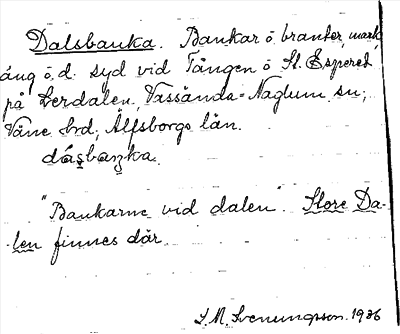 Dalsbanka. Bankar o. branter, mark,
äng o. d. syd vid Tången o St. Espered
på Lerdalen, Vassända-Naglum sn,
Väne hd, Älfsborgs län.
dásbaŋka.
"Bankarne vid dalen". Store Da-
-len finnes där.
S. M. Svenungsson. 1936